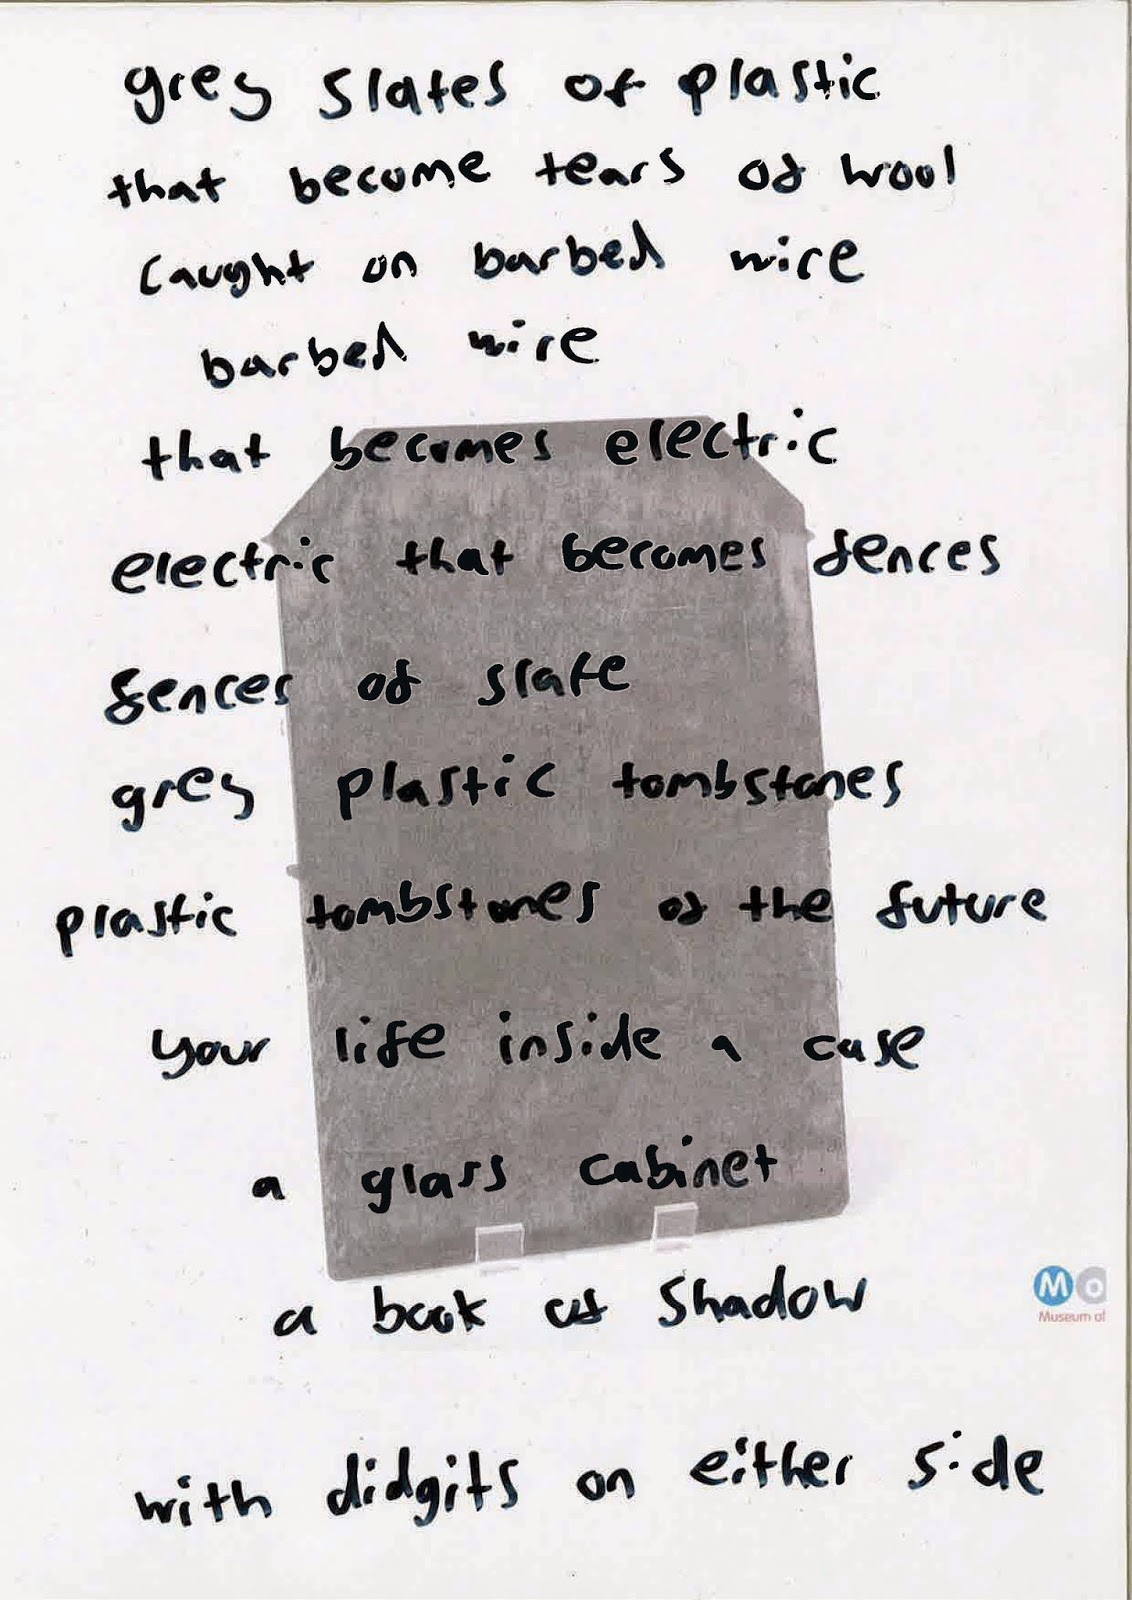 grey slates of plastic
that become tears of wool
caught on barbed wire
barbed wire
that becomes electric
electric that becomes fences
fences of slate
grey plastic tombstones
plastic tombstones of the future
your life inside a case
a glass cabinet
a book of shadow
with didgits on either side
Mo
Museum of